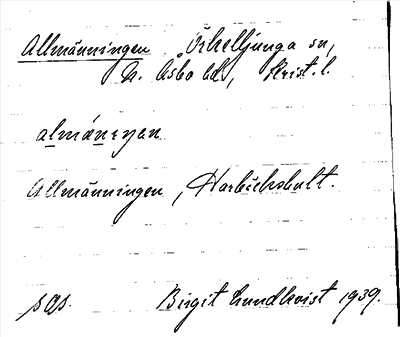 Allmänningen Örkelljunga sn,
N. Åsbo hd, Krist. l.
almäneņen
Allmänningen, Harbäckshult.
sgs. Birgit Lundkvist 1939.